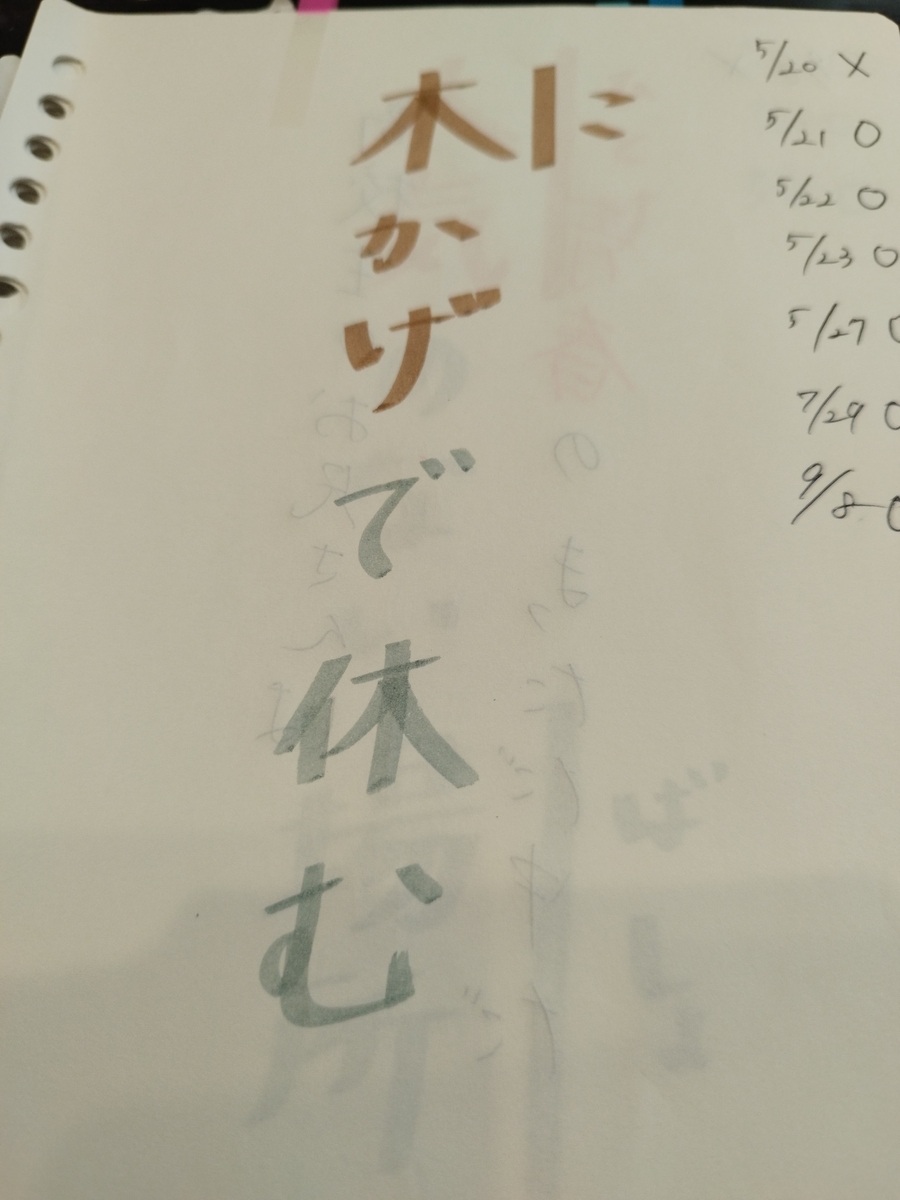 5/20 ×
5/21 ○
5/22 ○
5/23 ○
5/27 ○
7/29 ○
9/8 ○
に
木かげで休む